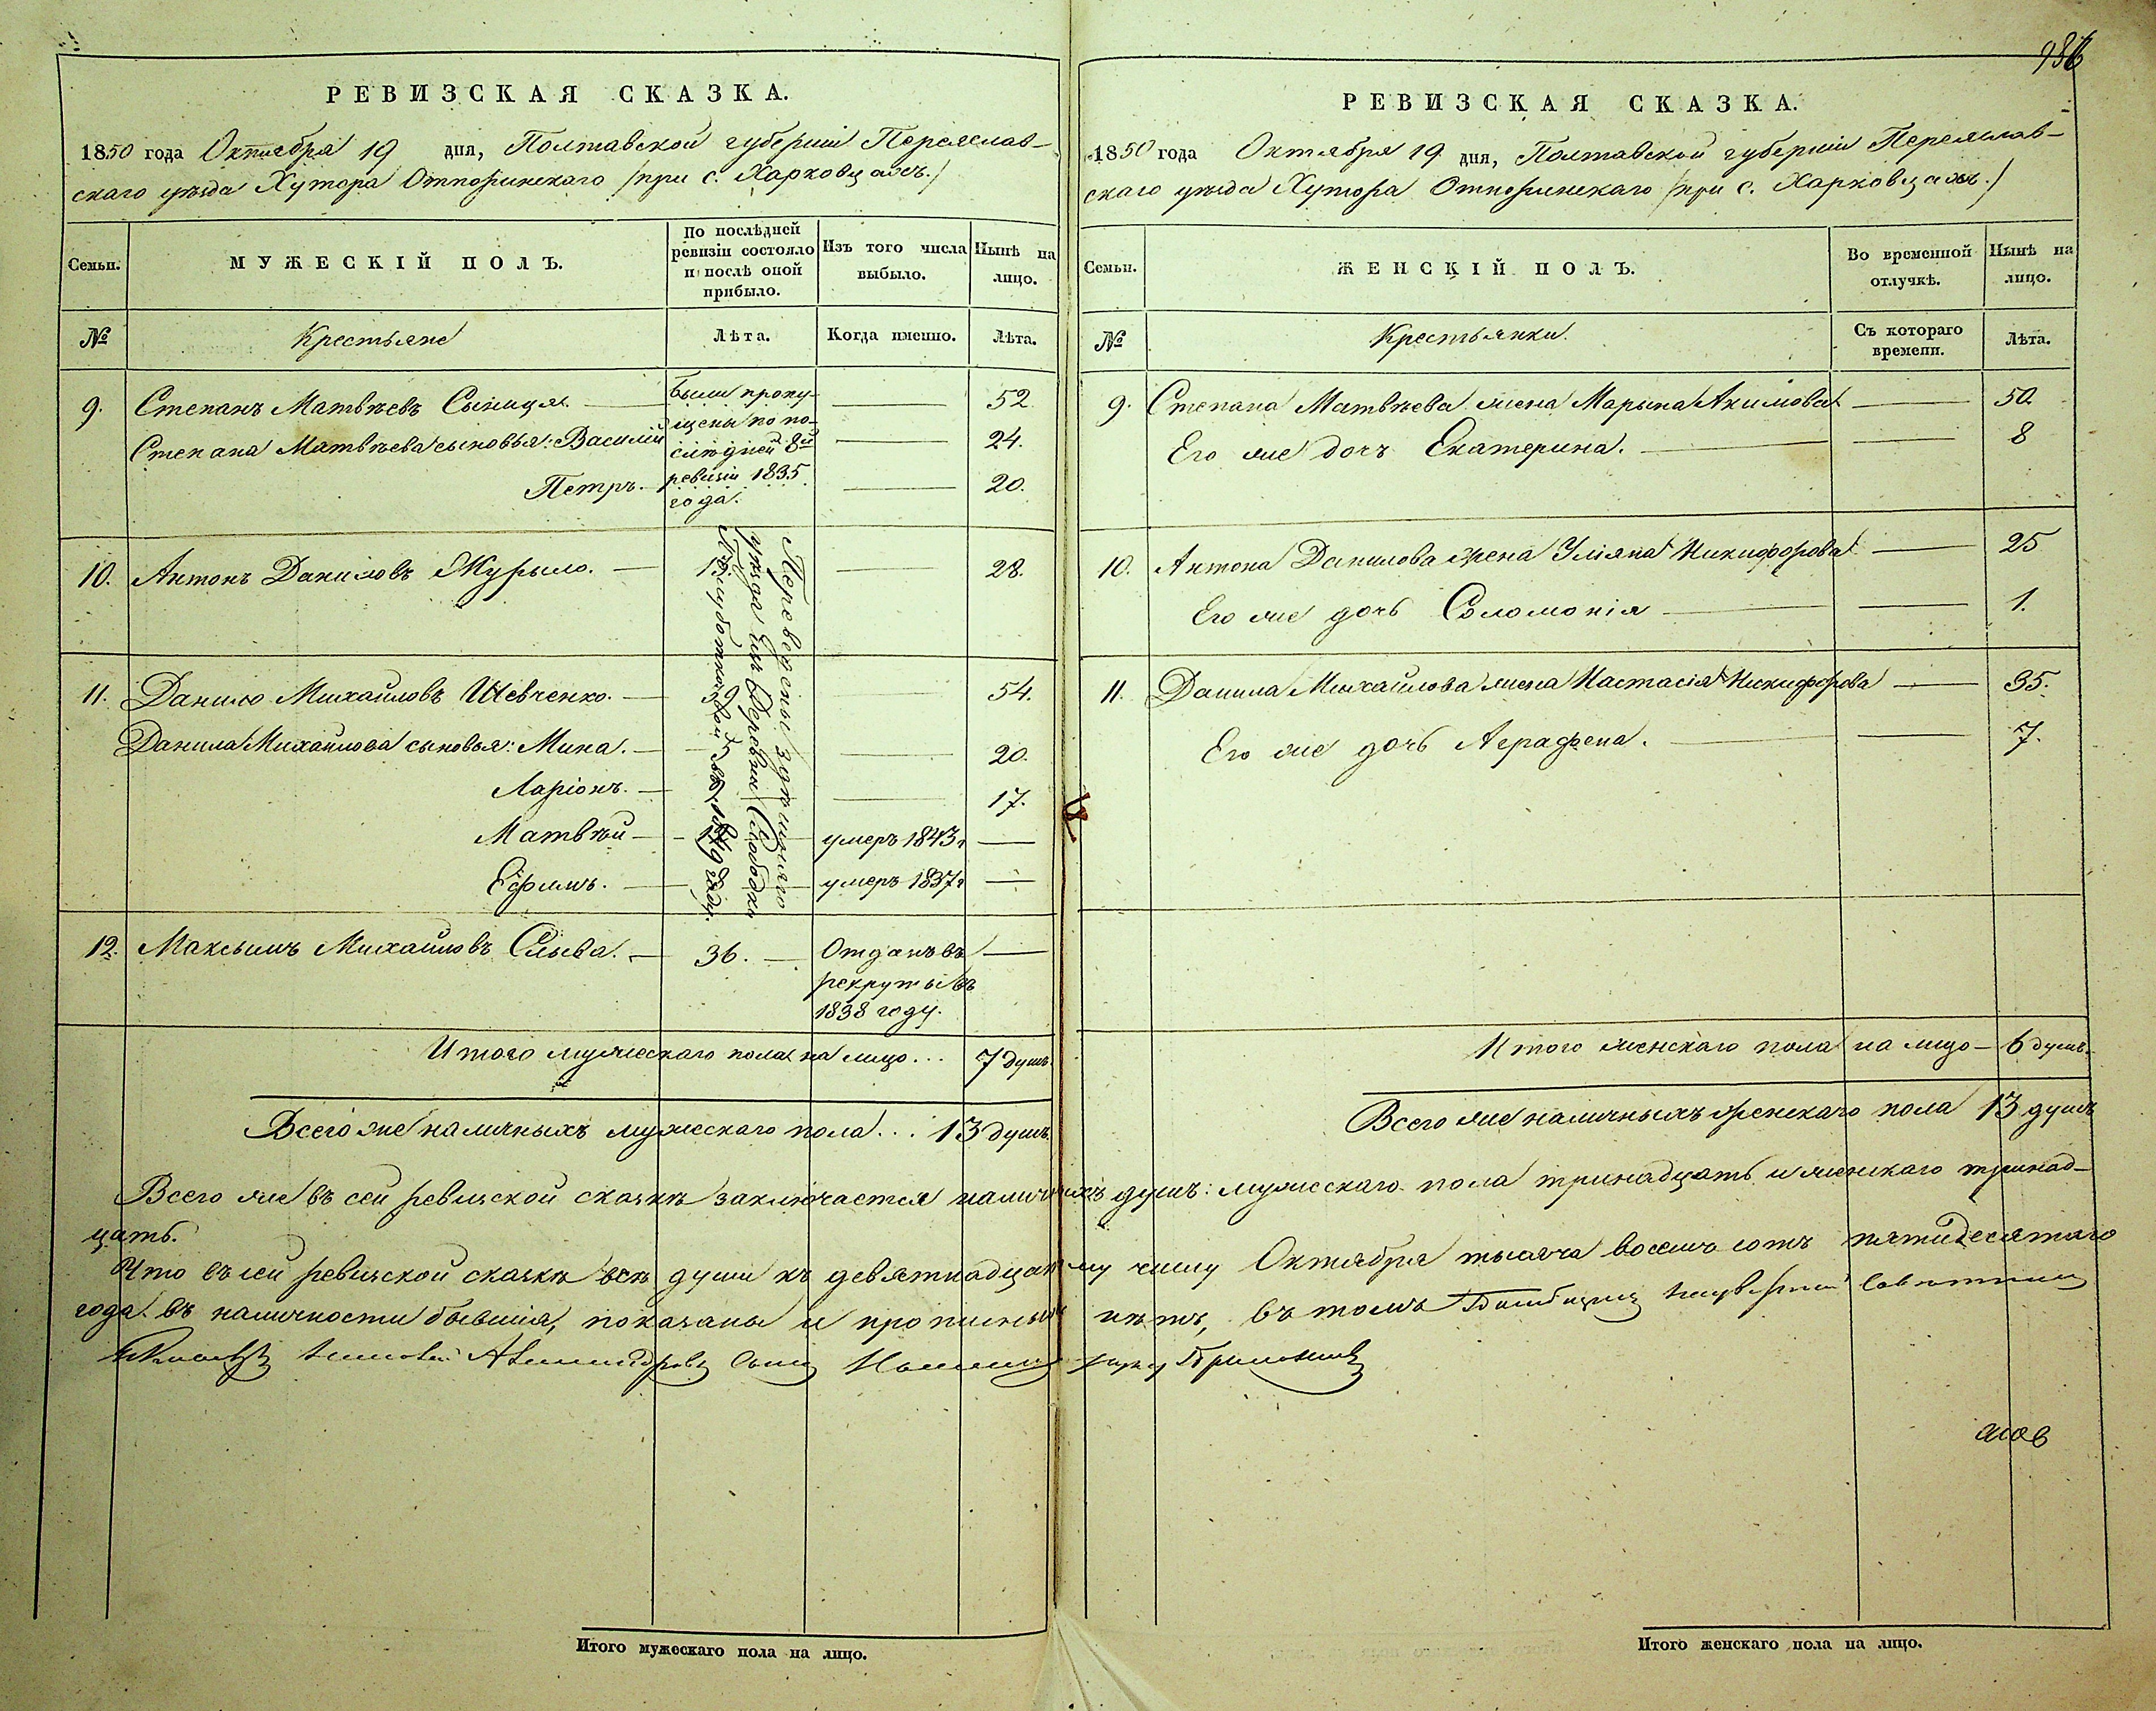 986
РЕВИЗСКАЯ СКАЗКА.
1850 года Октября 19 дня, Полтавской губернiи Переяслав-
скаго уѣзда Хутора /при с. Харковцахъ./
Семьи.
МУЖЕСКIЙ ПОЛЪ.
По послѣдней
ревизiи состояло
и послѣ оной
прибыло.
Изъ того числа
выбыло.
Нынѣ на
лицо.
№
Крестьяне
Лѣта.
Когда именно.
Лѣта.
9. Степанъ Матвѣевъ Сыниця. 52
Степана Матвѣева сыновья: Василiй 24.
Петръ. 20.
были пропу-
щены по по-
слѣдней 8й
ревизiи 1835
года.
10. Антонъ Даниловъ Журыло. 28.
11. Данило Михайловъ Шевченко. 39 54.
Данила Михайлова сыновья: Мина. 5 20.
Ларiонъ. 17.
Матвѣй умеръ 1843г
Ефимъ. умеръ 1837г
Переведены здѣшняго
уѣзда изъ деревни Слободки
1849 году.
12. Максымъ Михайловъ Слыва. 36. Отданъ въ
рекруты въ
1838 году.
Итого мужескаго пола на лицо... 7 душъ.
Всего же наличныхъ мужескаго пола... 13 душъ.
РЕВИЗСКАЯ СКАЗКА.
1850 года Октября 19 дня, Полтавской губернiи Переяслав-
скаго уѣзда Хутора /при с. Харковцахъ./
Семьи.
ЖЕНСКIЙ ПОЛЪ.
Во временной
отлучкѣ.
Нынѣ на
лицо.
№
Крестьянки.
Съ котораго
времени.
Лѣта.
9. Степана Матвѣева жена Марына Акимова 50
Его же дочъ Екатерина. 8
10. Антона Данилова жена Улiяна Никифорова 25
Его же дочь Соломонiя 1.
11. Данила Михайлова жена Настасiя Никифорова 35.
Его же дочь Аграфена. 7.
Итого женскаго пола на лицо 6 душъ.
Всего же наличныхъ женскаго пола 13 душъ
Всего же въ сей ревизской сказкѣ заключается наличныхъ душъ: мужескаго пола тринадцать и женскаго тринад-
цать.
Что въ сей ревизской сказкѣ всѣ души къ девятнадцатому числу Октября тысяча восемь сотъ пятидесятаго
года въ наличности бывшiя, показаны и прописныхъ нѣтъ, въ томъ
Итого мужескаго пола на лицо.
Итого женскаго пола на лицо.